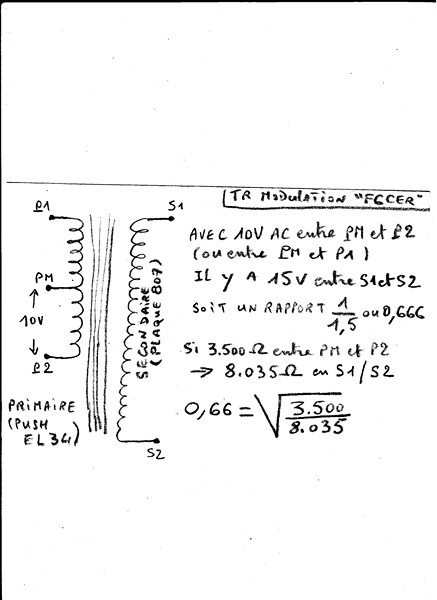 TR MODULATION "FGCER"
P1
S1
AVEC 10V AC entre PM et P2
(ou entre PM et P1)
IL Y A 15V entre S1 et S2
PM
10V
SOIT UN RAPPORT 1/1,5 ou 0,666
SECONDAIRE
(PLAQUE 807)
P2
Si 3.500 Ω entre PM et P2
→ 8.035 Ω en S1/S2
PRIMAIRE
(PUSH
EL34)
0,66 = √3.500/8.035
S2